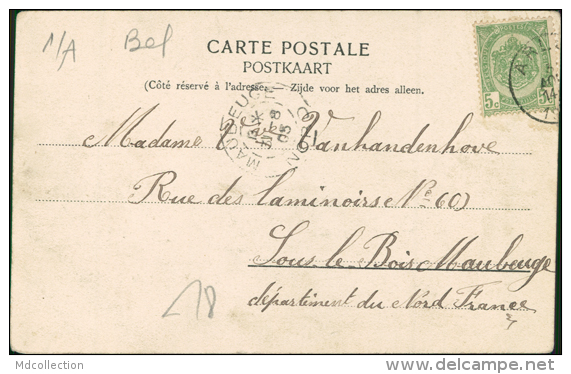 1/A Bel
CARTE POSTALE
POSTKAART
(Côté réservé à l'adresse. Zijde voor het adres alleen.
5c
MAUBEUGE
NORD
Madame V. Vanhandenhove
Rue des laminoirse No 60
Sous-le-Bois Maubeuge
département du Nord France
18
Mdcollection
www.delcampe.net